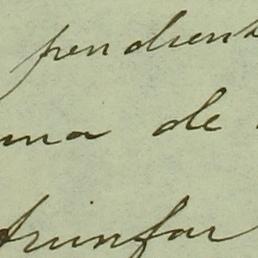 pendient
ma de
triunfar